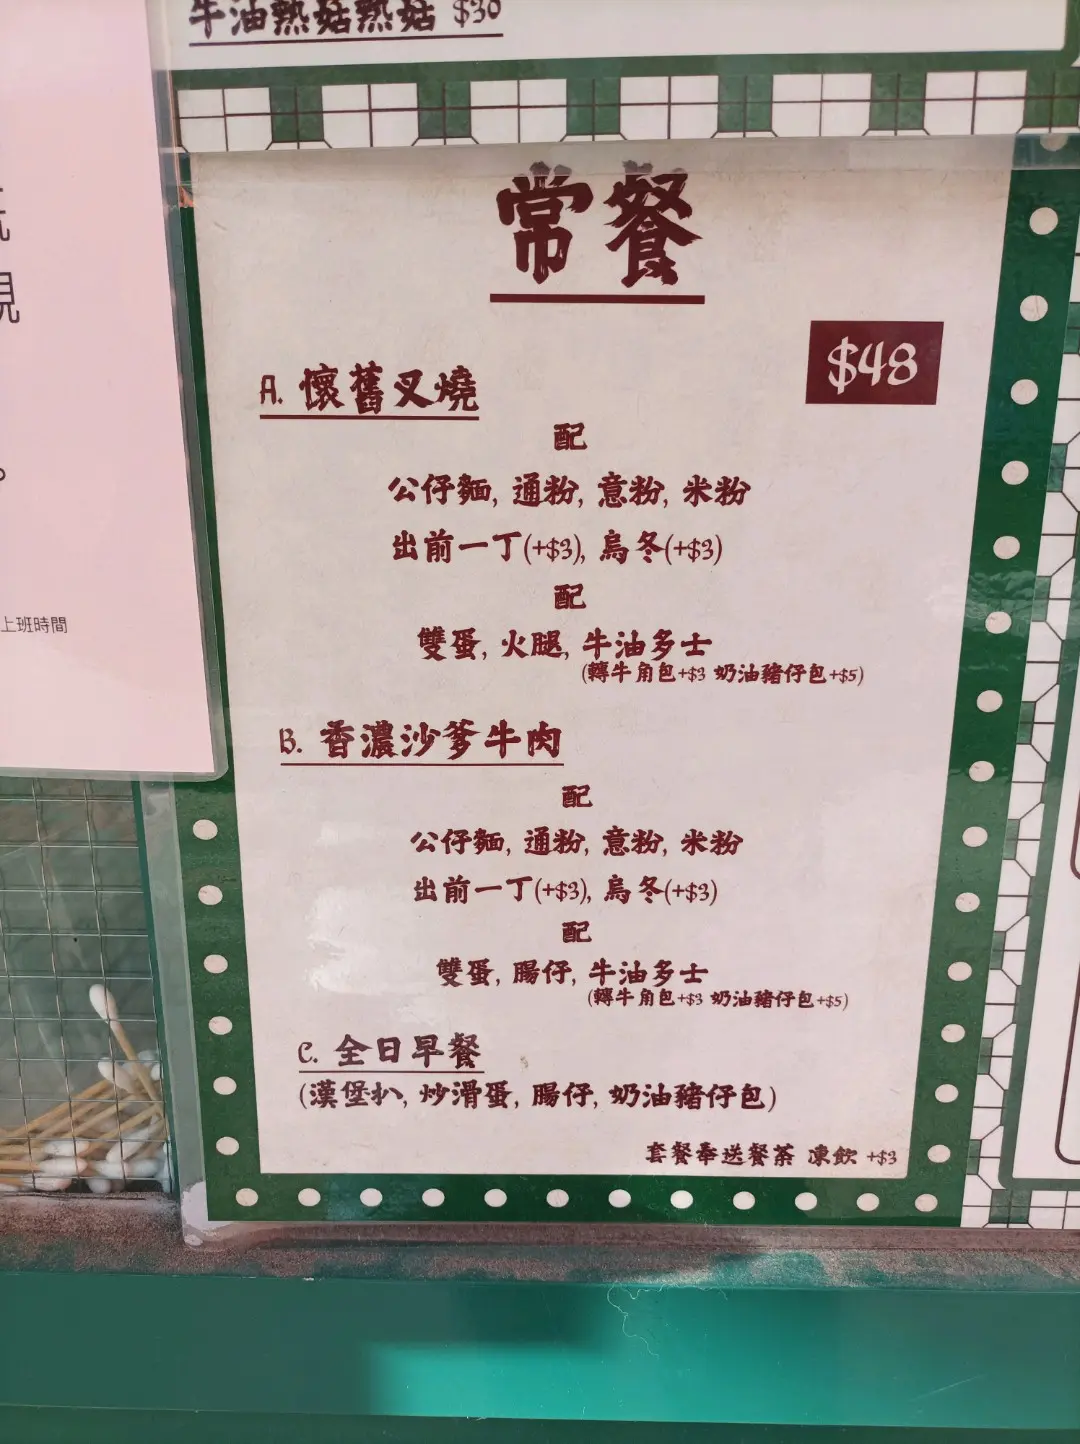 牛油熱菇熱菇 $30
常餐
$48
A. 懷舊叉燒
配
公仔麵, 通粉, 意粉, 米粉
出前一丁(+$3), 烏冬(+$3)
配
雙蛋, 火腿, 牛油多士
(轉牛角包+$3 奶油豬仔包+$5)
B. 香濃沙爹牛肉
配
公仔麵, 通粉, 意粉, 米粉
出前一丁(+$3), 烏冬(+$3)
配
雙蛋, 腸仔, 牛油多士
(轉牛角包+$3 奶油豬仔包+$5)
C. 全日早餐
(漢堡扒, 炒滑蛋, 腸仔, 奶油豬仔包)
套餐奉送餐茶 凍飲 +$3
上班時間